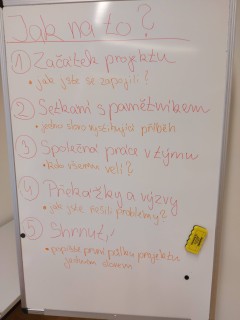 Jak na to?
1 Začátek projektu
• jak jste se zapojili?
2 Setkání s pamětníkem
• jedno slovo vystihující příběh
3 Společná práce v týmu
• Kdo všemu velí?
4 Překážky a výzvy
• jak jste řešili problémy?
5 Shrnutí
• popište první polovinu projektu
jedním slovem